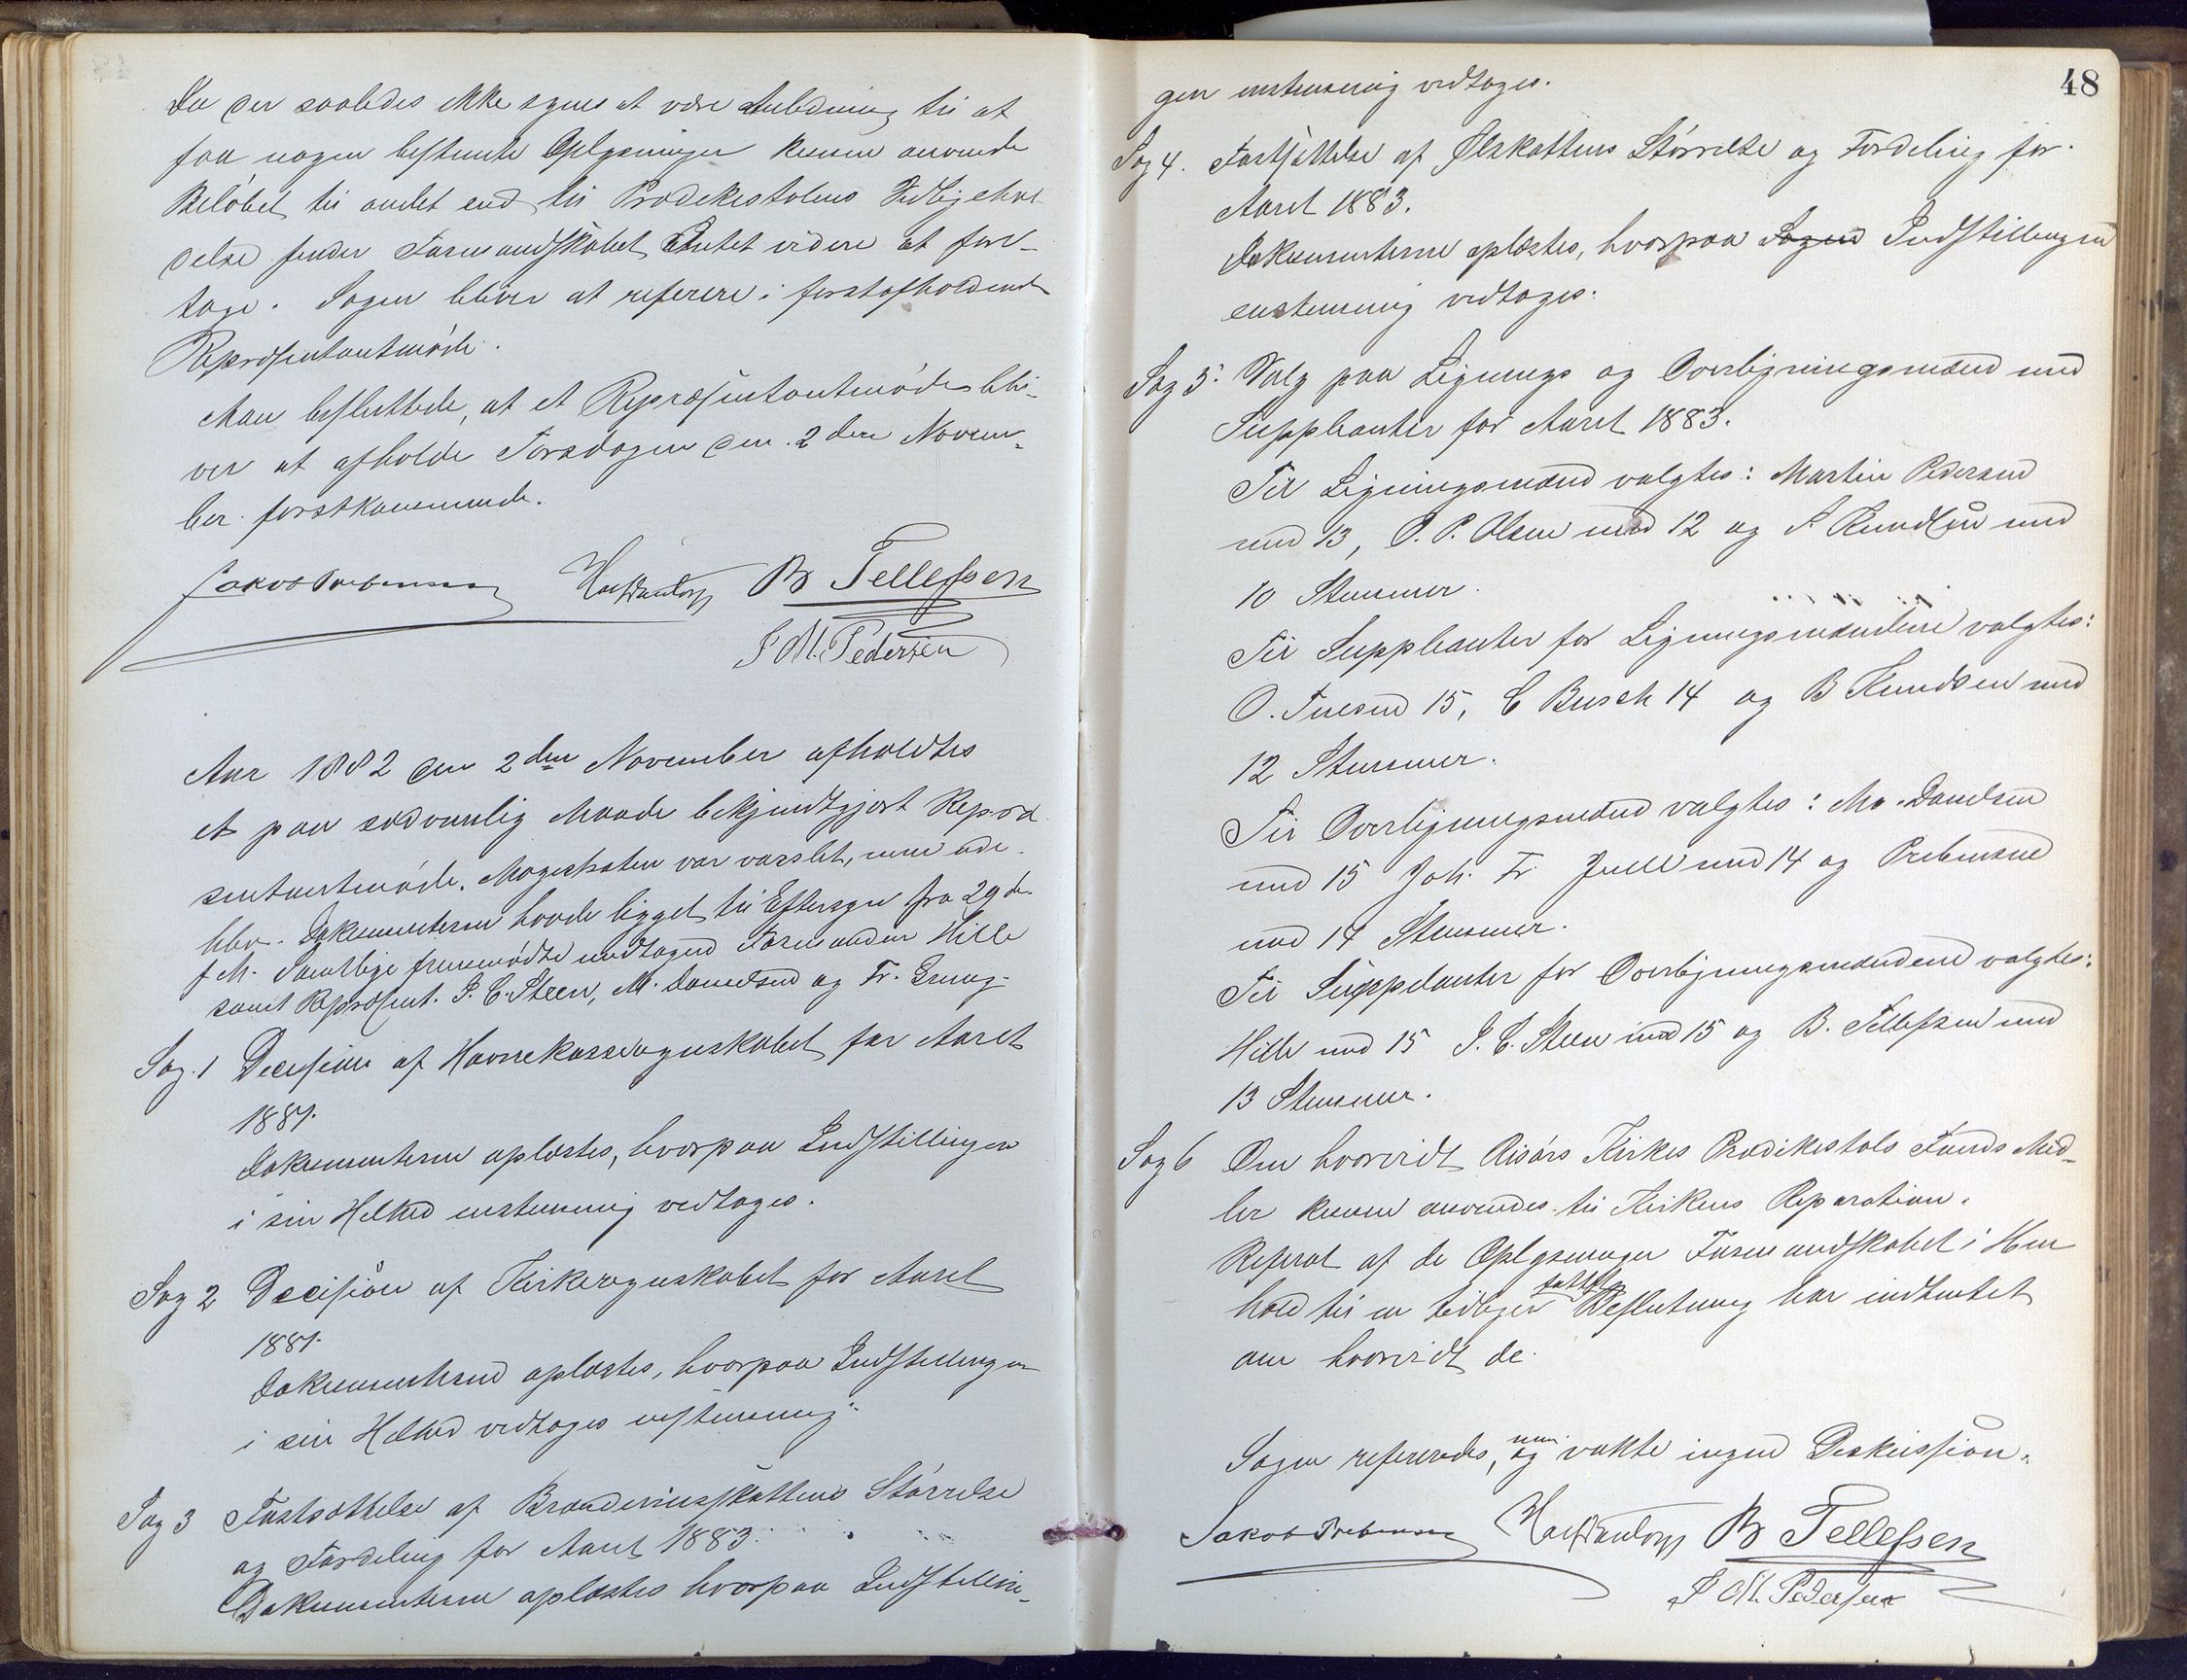 Da der saaledes ikke synes at være Anledning til at
faa nogen bestemte Oplysninger kunne anvende
Beløbet til andet end til Prædikestolens Vedligehol
delse finder Formandskabet Intet videre at fore-
tage. Sagen bliver at referere i førstafholdende
Repræsentantmøde.
Man besluttede, at et Repræsentantmøde bli-
ver at afholde Torsdagen den 2den Novem-
ber førstkommende.
Jakob Prebensen B Tellefsen
P M. Pedersen
Aar 1882 den 2den November afholdtes
et paa sædvanlig Maade bekjendtgjort Repræ
sentantmøde. Magistraten var varslet, men ude-
blev. Dokumenterne havde ligget til Eftersyn fra 29de
f. M. Samtlige fremmødte undtagen Formanden Hille
samt Repræsent. J. C. Steen, M. Danielsen og Fr. Grung.
Sag. 1 Decision af Havnekasseregnskabet for Aaret
1881.
Dokumenterne oplæstes, hvorpaa Indstillingen
i sin Helhed enstemmig vedtages.
Sag 2 Decision af Kirkeregnskabet for Aaret
1881.
Dokumenterne oplæstes, hvorpaa Indstillingen
i sin Helhed vedtages enstemmig.
Sag 3 Fastsættelse af Brændevinsskattens Størrelse
og Fordeling for Aaret 1883.
Dokumenterne oplæstes hvorpaa Indstillin-
48
gen enstemmig vedtages.
Sag 4. Fastsættelse af Ølskattens Størrelse og Fordeling for
Aaret 1883.
Dokumenterne oplæstes, hvorpaa Sagen Indstillingen
enstemmig vedtages.
Sag 5. Valg paa Lignings og Overligningsmænd med
Suppleanter for Aaret 1883.
Til Ligningsmænd valgtes: Martin Pedersen
med 13, O. P. Olsen med 12 og med
10 Stemmer.
Til Suppleanter for Ligningsmændene valgtes:
O. 15, C Busch 14 og B Knudsen med
12 Stemmer.
Til Overligningsmænd valgtes: M. Danielsen
med 15 Joh. Fr. Juell med 14 og Prebensen
med 14 Stemmer.
Til Suppleanter for Overligningsmændene valgtes:
Hille med 15 J. C. Steen med 15 og B. Tellefsen med
13 Stemmer.
Sag 6 Om hvorvidt Risørs Kirkes Prædikestols Fonds Mid-
ler kunne anvendes til Kirkens Reparation.
Referat af de Oplysninger Formandskabet i Hen
hold til en tidligere fattet Beslutning har indhentet
om hvorvidt de
Sagen refereredes, og men vakte ingen Diskussion.
Jakob Prebensen B Tellefsen
P M. Pedersen